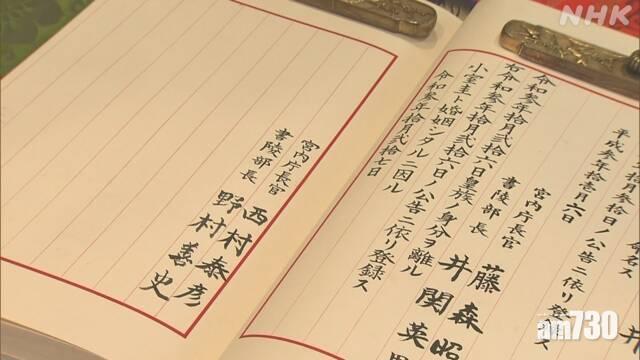 命名ス
拾月参拾日ノ公告ニ依リ登録ス
平成参年拾壱月六日
宮内庁長官 藤森昭
書陵部長 井関英
令和参年拾月弐拾六日皇族ノ身分ヲ離ル
小室圭ト婚姻シタルニ因ル
右令和参年拾月弐拾六日ノ公告ニ依リ登録ス
令和参年拾月弐拾七日
宮内庁長官 西村泰彦
書陵部長 野村善史
NHK
am730